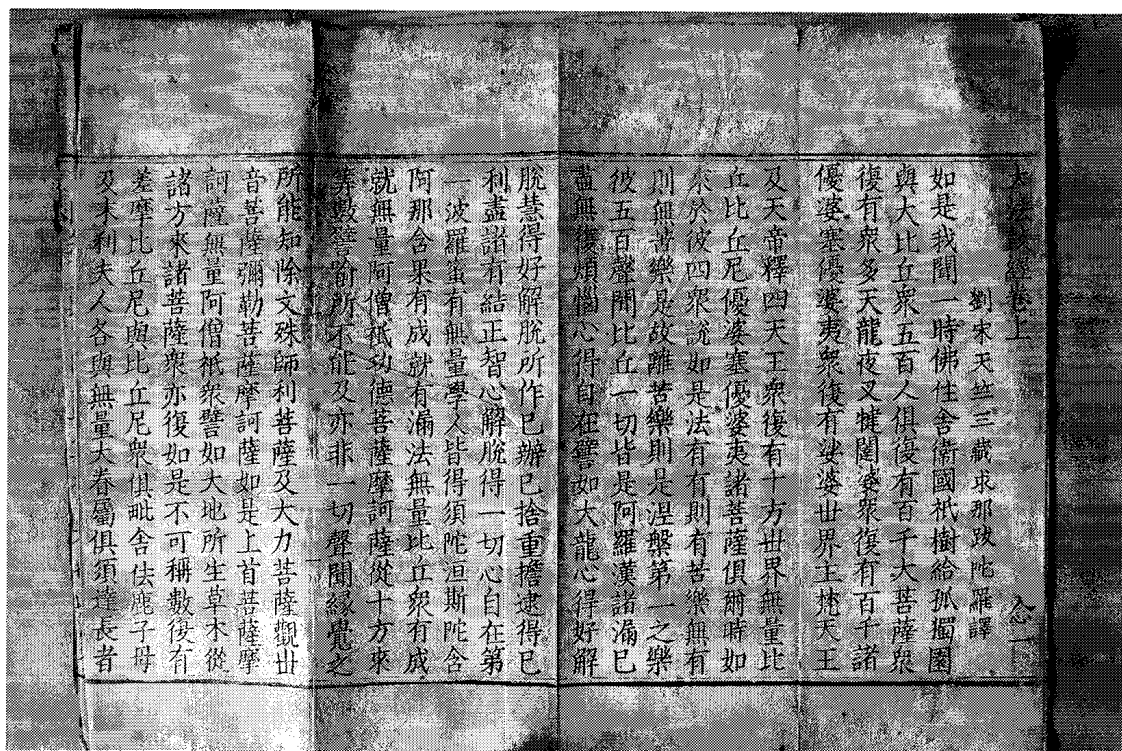 大法鼓經卷上 念一
劉宋天竺三藏求那跋陀羅譯
如是我聞一時佛住舍衛國祇樹給孤獨園
與大比丘衆五百人俱復有百千大菩薩衆
復有衆多天龍夜叉犍闥婆衆復有百千諸
優婆塞優婆夷衆復有娑婆世界主梵天王
及天帝釋四天王衆復有十方世界無量比
丘比丘尼優婆塞優婆夷諸菩薩俱爾時如
來於彼四衆說如是法有有則有苦樂無有
則無苦樂是故離苦樂則是涅槃第一之樂
彼五百聲聞比丘一切皆是阿羅漢諸漏已
盡無復煩惱心得自在譬如大龍心得好解
脫慧得好解脫所作已辦已捨重擔逮得已
利盡諸有結正智心解脫得一切心自在第
一波羅蜜有無量學人皆得須陀洹斯陀含
阿那含果有成就有漏法無量比丘衆有成
就無量阿僧祇功德菩薩摩訶薩從十方來
筭數譬喻所不能及亦非一切聲聞緣覺之
所能知除文殊師利菩薩及大力菩薩觀世
音菩薩彌勒菩薩摩訶薩如是上首菩薩摩
訶薩無量阿僧祇衆譬如大地所生草木從
諸方來諸菩薩衆亦復如是不可稱數復有
差摩比丘尼與比丘尼衆俱毗舍佉鹿子母
及末利夫人各與無量大眷屬俱須達長者